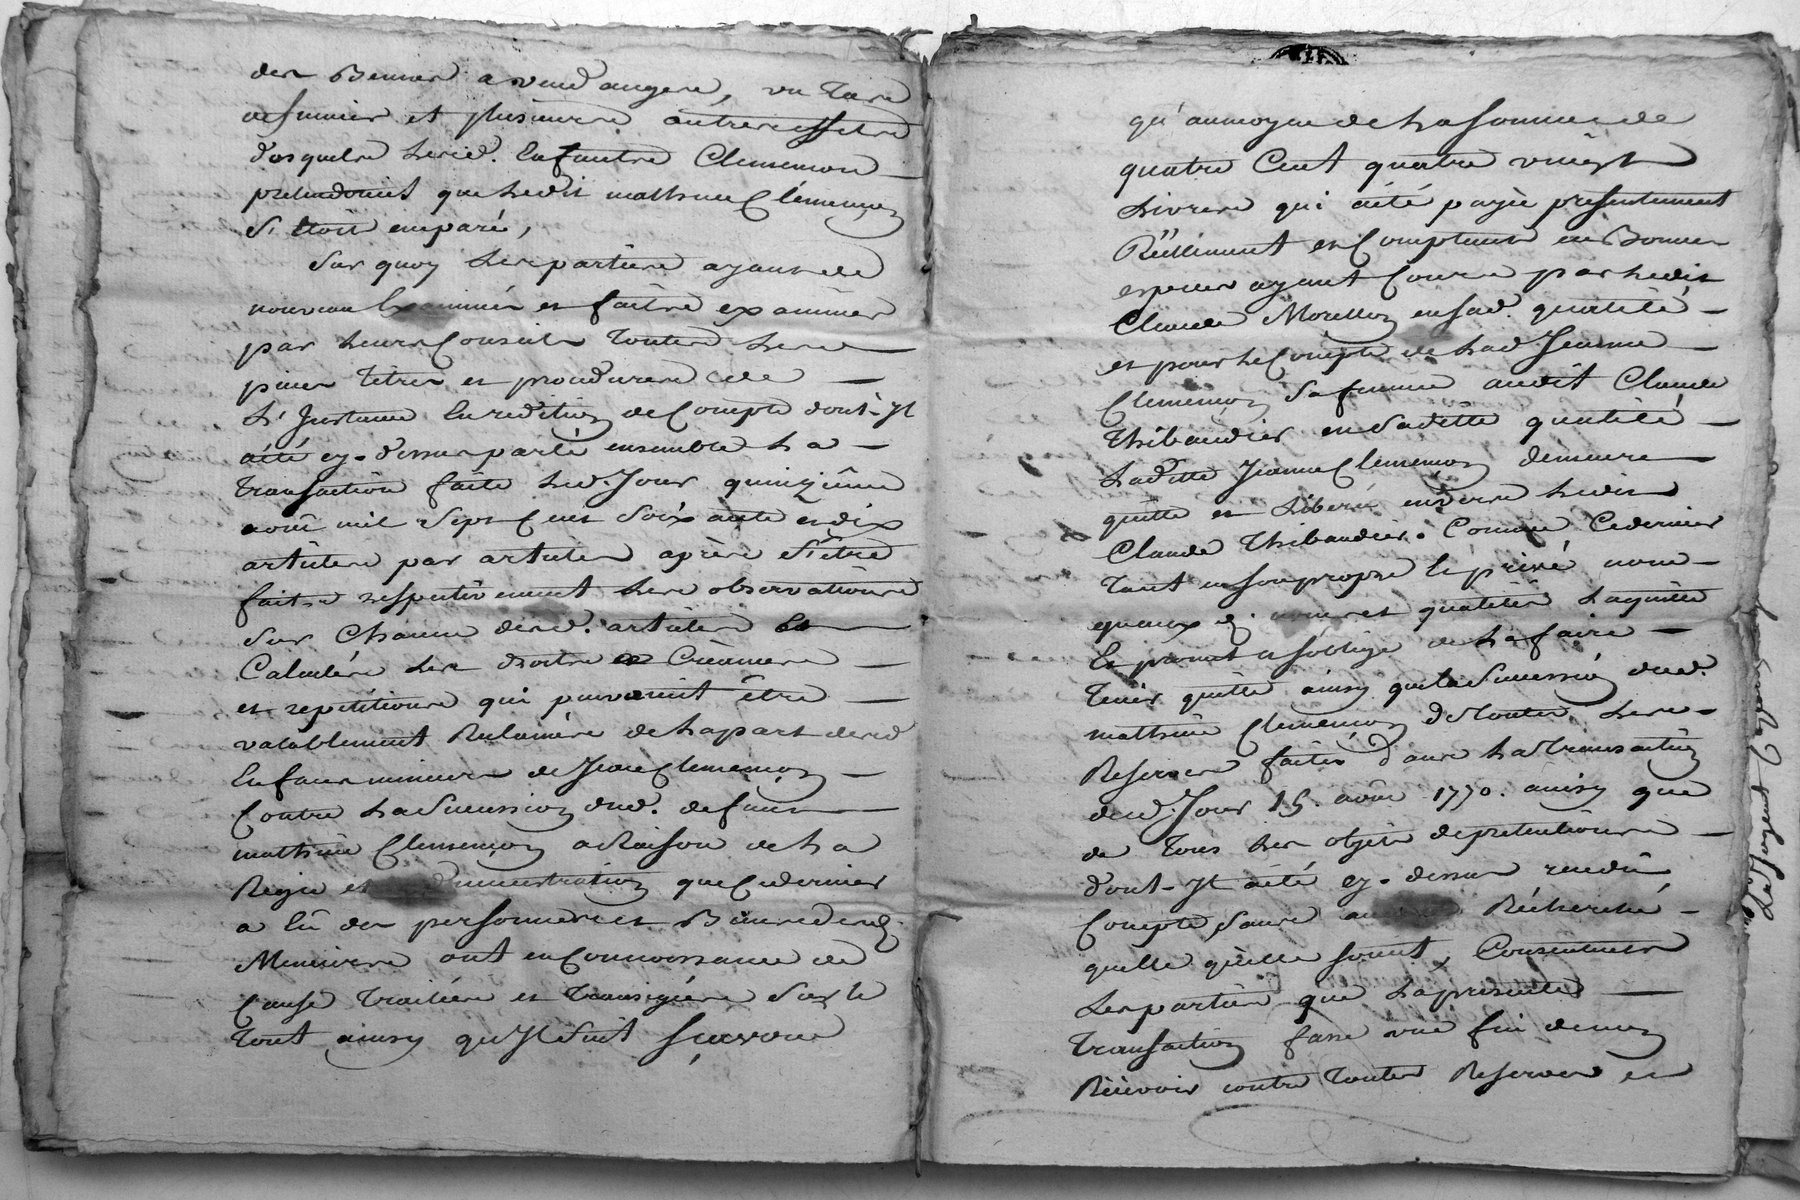 des Bennes a vendangere, un tare
de fumier et plusieurs autres effets
dosquels lesd. Enfants Clemençon
pretendoient que ledit mathieu Clémençon
s'etoit emparé,
Sur quoy les parties ayant de
nouveau Examinés et faitre examiner
par leurs Conseils toutes les
pieces titres et procedures de
L'Instance En redition de Compte dont-Il
a été cy-dessus parlé ensemble La
transaction faite led. Jour quinzième
août mil Sept Cent Soixante et dix
articles par articles après s'être
faits respectivement les observations
sur Chacun desd. articles Et
Calculés les droits Créances
et repétitions qui pouvoient être
valablement Reclamées de la part desd
Enfans mineurs de Jean Clemençon
Contre La Succession dud. defunt
mathieu Clemençon a Raison de La
Regie et administration que Ce dernier
a Eu des personnes et Biens desd.
Mineurs ont en Connoissance de
Cause traitées et transigées Sur le
tout ainsy qu'Il Suit Sçavoir
qu'au moyen de La Somme de
quatre Cent quatre vingt
Livres qui a été payée presentement
Réellement et Comptant en Bonnes
especes ayant Cours par ledit
Claude Morellon en sad. qualité
et pour le Compte de lad Jeanne
Clemençon Sa femme audit Claude
Thibaudier en Sa ditte qualité
Laditte Jeanne Clemençon demeure
quitte et Liberée envers ledit
Claude Thibaudier. Comme Ce dernier
tant en son propre Et privé nom
qu'aux noms et qualités Laquelle
Il promet et s'oblige de La faire
tenir quitte ainsy que la Succession dud.
mathieu Clemençon de toutes les
Reserves faites dans La transaction
dud. Jour 15 août 1770. ainsy que
de tous les objets de pretentions
dont-Il a été cy-dessus rendu
Compte sans Récherche
quelle qu'elle soient, Consentent
Les parties que La presente
transaction fasse une fin de non
Recevoir contre toutes Reserves et